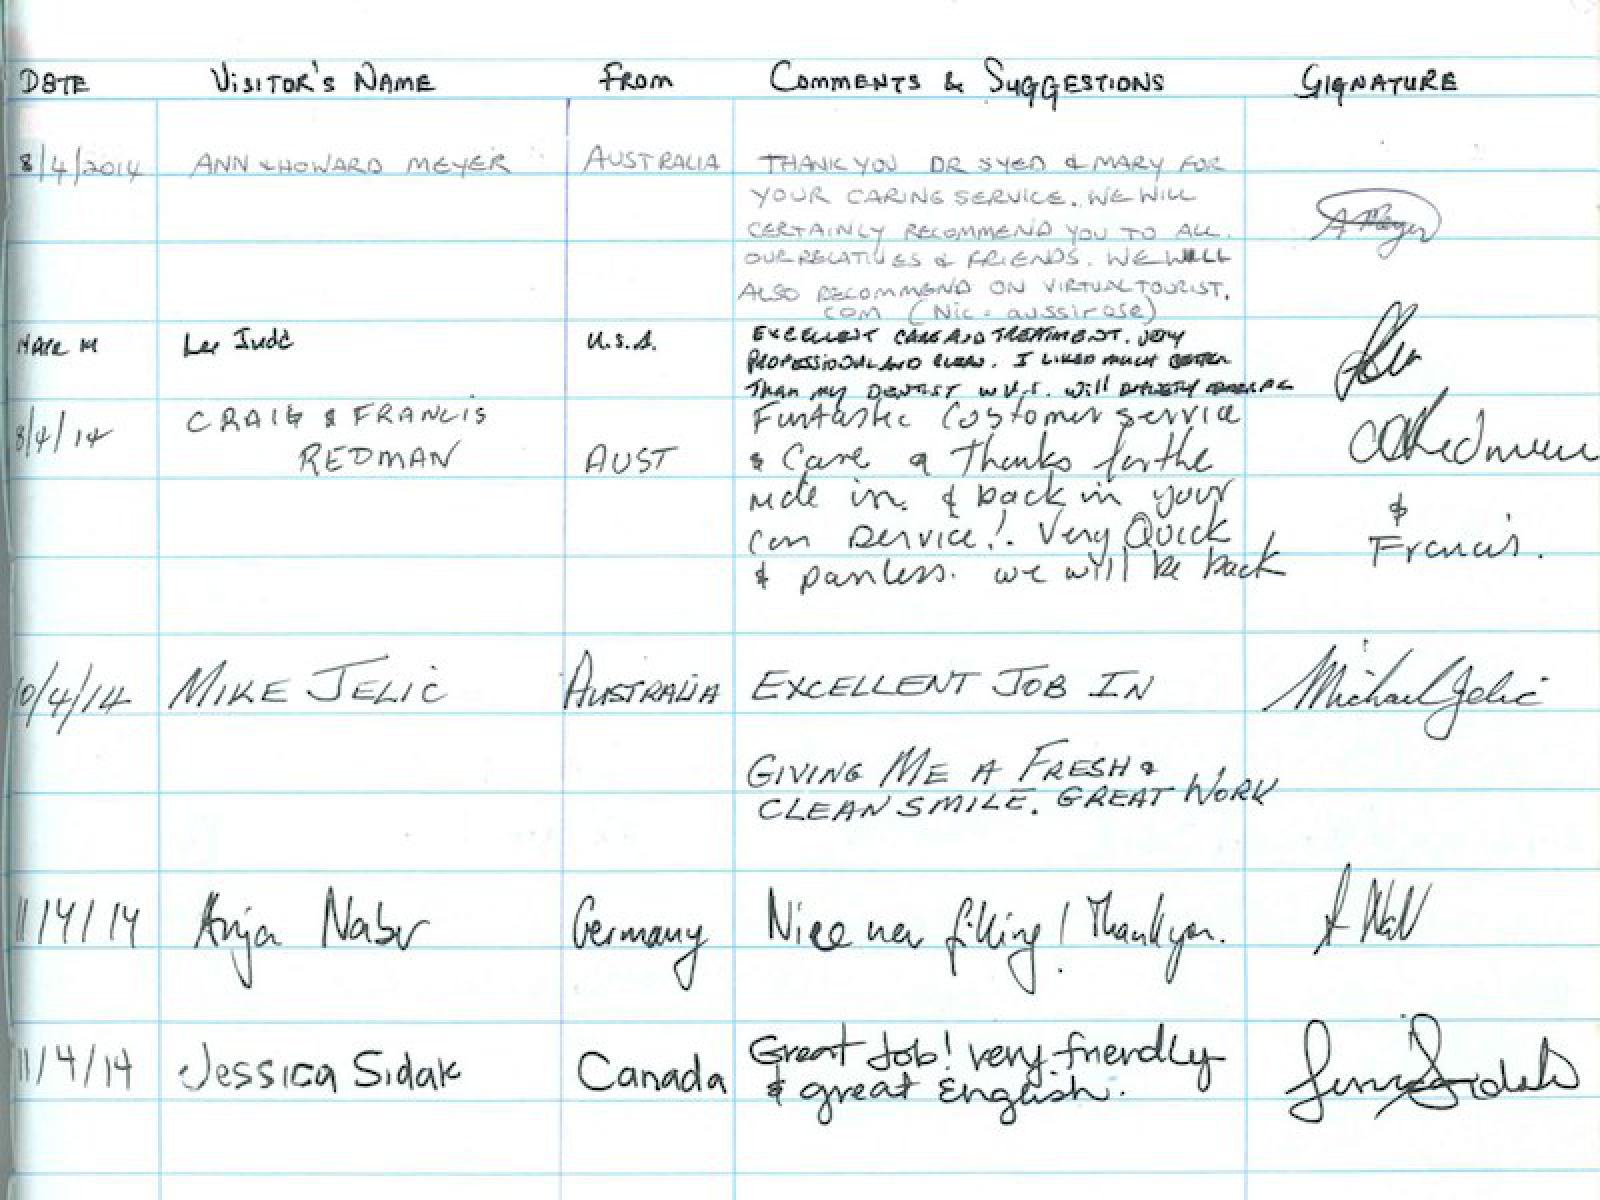 DATE VISITOR'S NAME FROM COMMENTS & SUGGESTIONS SIGNATURE
8/4/2014 ANN & HOWARD MEYER AUSTRALIA THANK YOU DR SYED & MARY FOR
YOUR CARING SERVICE. WE WILL
CERTAINLY RECOMMEND YOU TO ALL
OUR RELATIVES & FRIENDS. WE WILL
ALSO RECOMMEND ON VIRTUALTOURIST.
COM (Nic - aussirose)
A Meyer
Lee Judd U.S.A. EXCELLENT CARE AND TREATMENT. VERY
PROFESSIONAL AND CLEAN. I LIKED MUCH BETTER
THAN MY DENTIST IN U.S. Will
8/4/14 CRAIG & FRANCIS REDMAN AUST Funtastic Costomer service
& Care & Thanks for the
ride in & back in your
car service! Very Quick
& painless. we will be back
C Redman
&
Francis.
10/4/14 MIKE JELIC AUSTRALIA EXCELLENT JOB IN Michael Jelic
GIVING ME A FRESH &
CLEAN SMILE. GREAT WORK
11/4/14 Anja Naber Germany Nice new filling! Thank you.
11/4/14 Jessica Sidak Canada Great Job! very friendly
& great English.